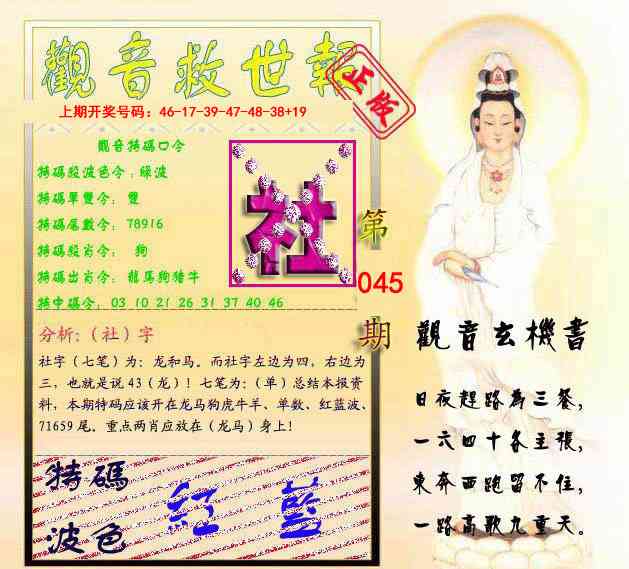 觀音救世報
正版
上期开奖号码：46-17-39-47-48-38+19
觀音特碼口令
特碼段波色令：綠波
特碼單雙令： 雙
特碼尾數令： 78916
特碼段肖令： 狗
特碼出肖令： 龍馬狗猪牛
特中碼令： 03 10 21 26 31 37 40 46
社
第
045
期
分析:（社）字
社字（七笔）为：龙和马。而社字左边为四，右边为
三，也就是说 43（龙）！七笔为：（单）总结本报资
料，本期特码应该开在龙马狗虎牛羊、单数、红蓝波、
71659 尾。重点两肖应放在（龙马）身上！
特碼
波色
紅 藍
觀音玄機書
日夜趕路為三餐，
一六四十各主張，
東奔西跑留不住，
一路高歌九重天。